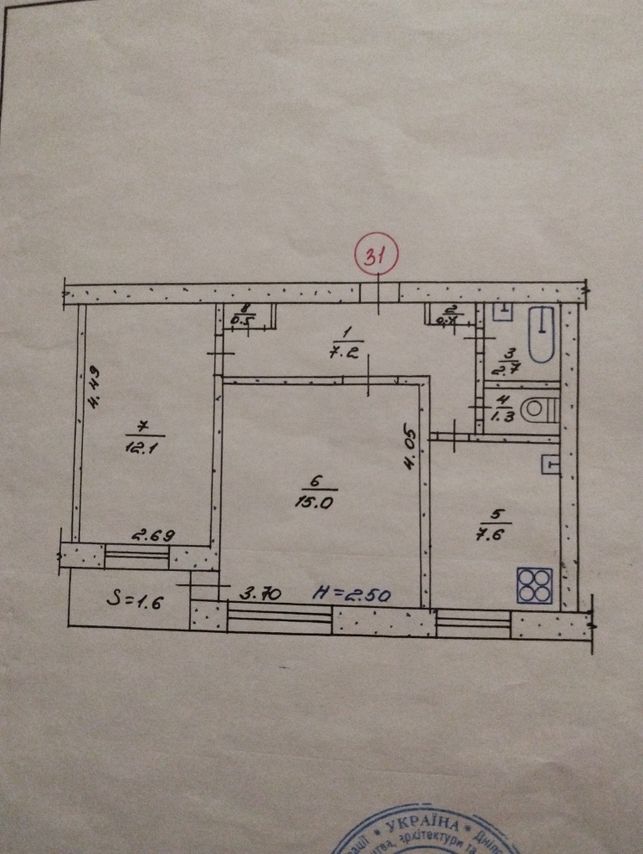 31
8
0.5
2
0.7
1
7.2
3
2.7
4.49
4
1.3
7
12.1
4.05
6
15.0
5
7.6
2.69
S=1.6
3.70
H=2.50
* УКРАЇНА *
архітектури та